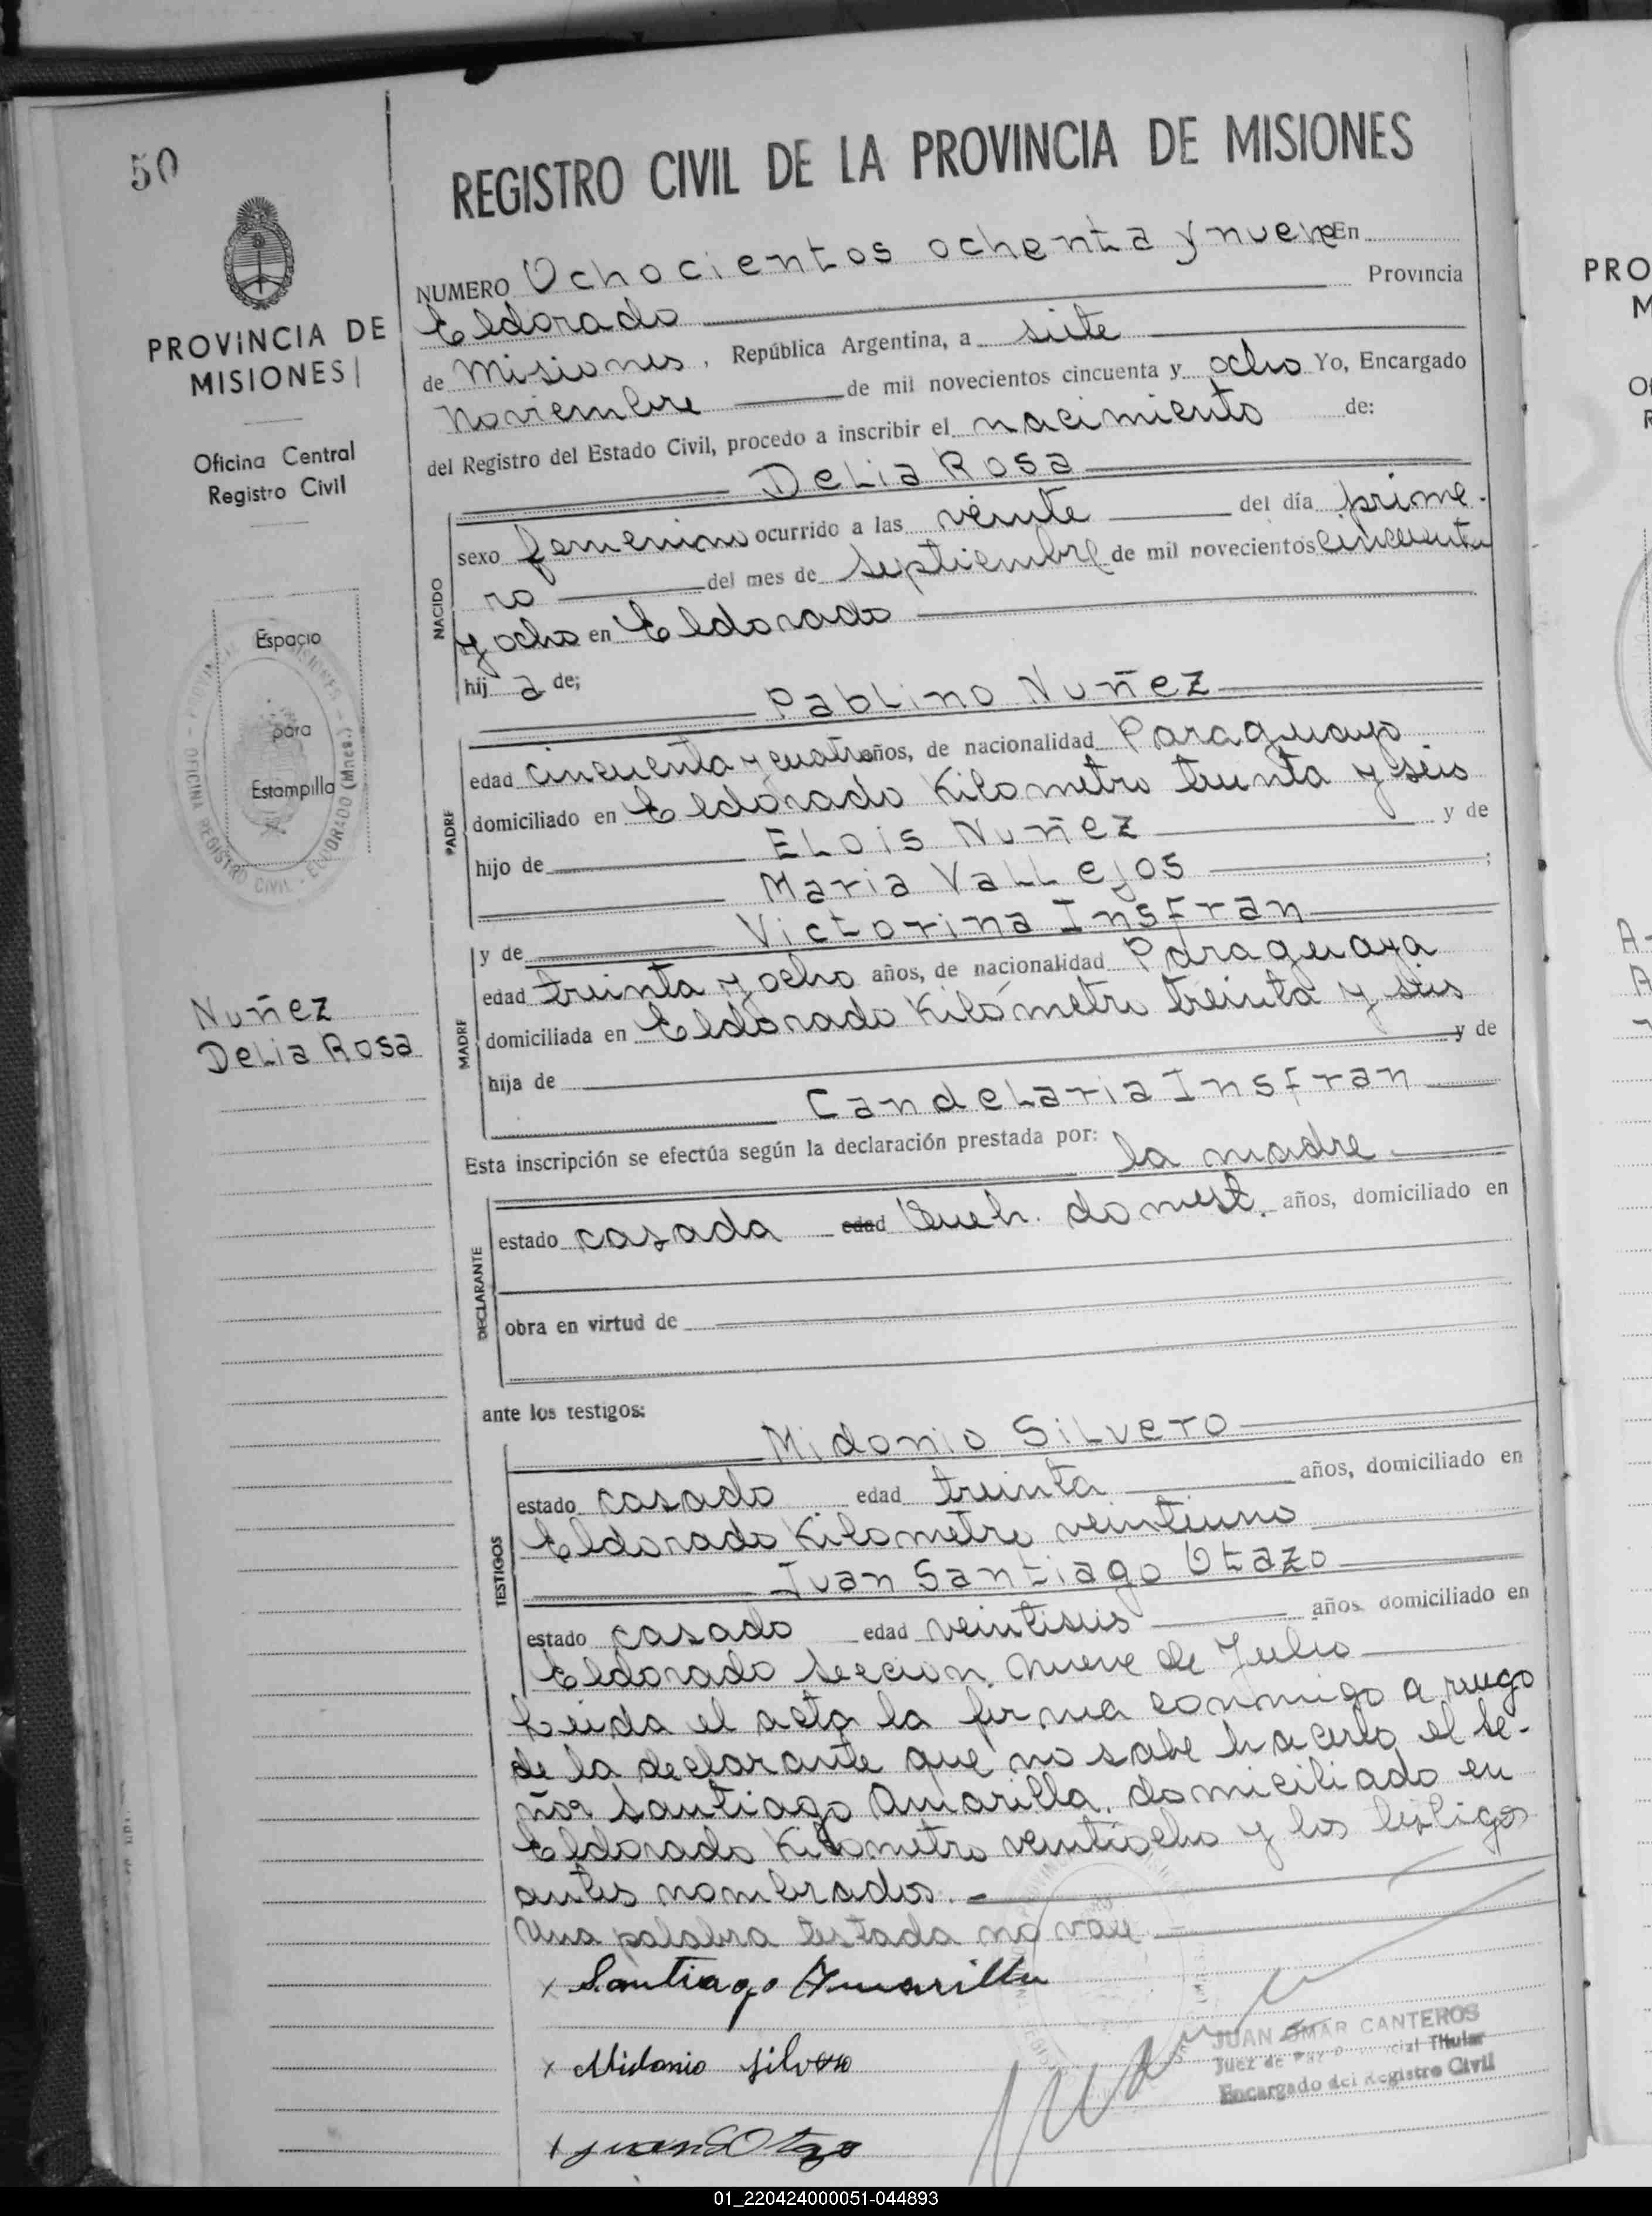 50
PROVINCIA DE
MISIONES
Oficina Central
Registro Civil
Espacio
para
Estampilla
Nuñez
Delia Rosa
REGISTRO CIVIL DE LA PROVINCIA DE MISIONES
NUMERO Ochocientos ochenta y nueve En
Eldorado Provincia
de Misiones, República Argentina, a siete
Noviembre de mil novecientos cincuenta y ocho Yo, Encargado
del Registro del Estado Civil, procedo a inscribir el nacimiento de:
Delia Rosa
NACIDO
sexo femenino ocurrido a las veinte del día prime-
ro del mes de septiembre de mil novecientos cincuenta
y ocho en Eldorado
hij a de;
Pablino Nuñez
PADRE
edad cincuenta y cuatro años, de nacionalidad Paraguayo
domiciliado en Eldorado Kilometro treinta y seis
hijo de Elois Nuñez y de
Maria Vallejos ;
y de Victorina Insfran
MADRE
edad treinta y ocho años, de nacionalidad Paraguaya
domiciliada en Eldorado Kilómetro treinta y seis
hija de y de
Candelaria Insfran
Esta inscripción se efectúa según la declaración prestada por:
la madre
DECLARANTE
estado casada edad Queh. domest. años, domiciliado en
obra en virtud de
ante los testigos:
Midonio Silvero
TESTIGOS
estado casado edad treinta años, domiciliado en
Eldorado Kilometro veintiuno
Juan Santiago Otazo
estado casado edad veintiseis años, domiciliado en
Eldorado seccion nueve de Julio
Leida el acta la firma conmigo a ruego
de la declarante que no sabe hacerlo el se-
ñor Santiago Amarilla, domiciliado en
Eldorado Kilometro veintiocho y los testigos
antes nombrados.-
Una palabra testada no vale
x Santiago Amarilla
x Midonio Silvero
x Juan S Otazo
JUAN OMAR CANTEROS
Juez de Paz Titular
Encargado del Registro Civil
PRO
01_220424000051-044893